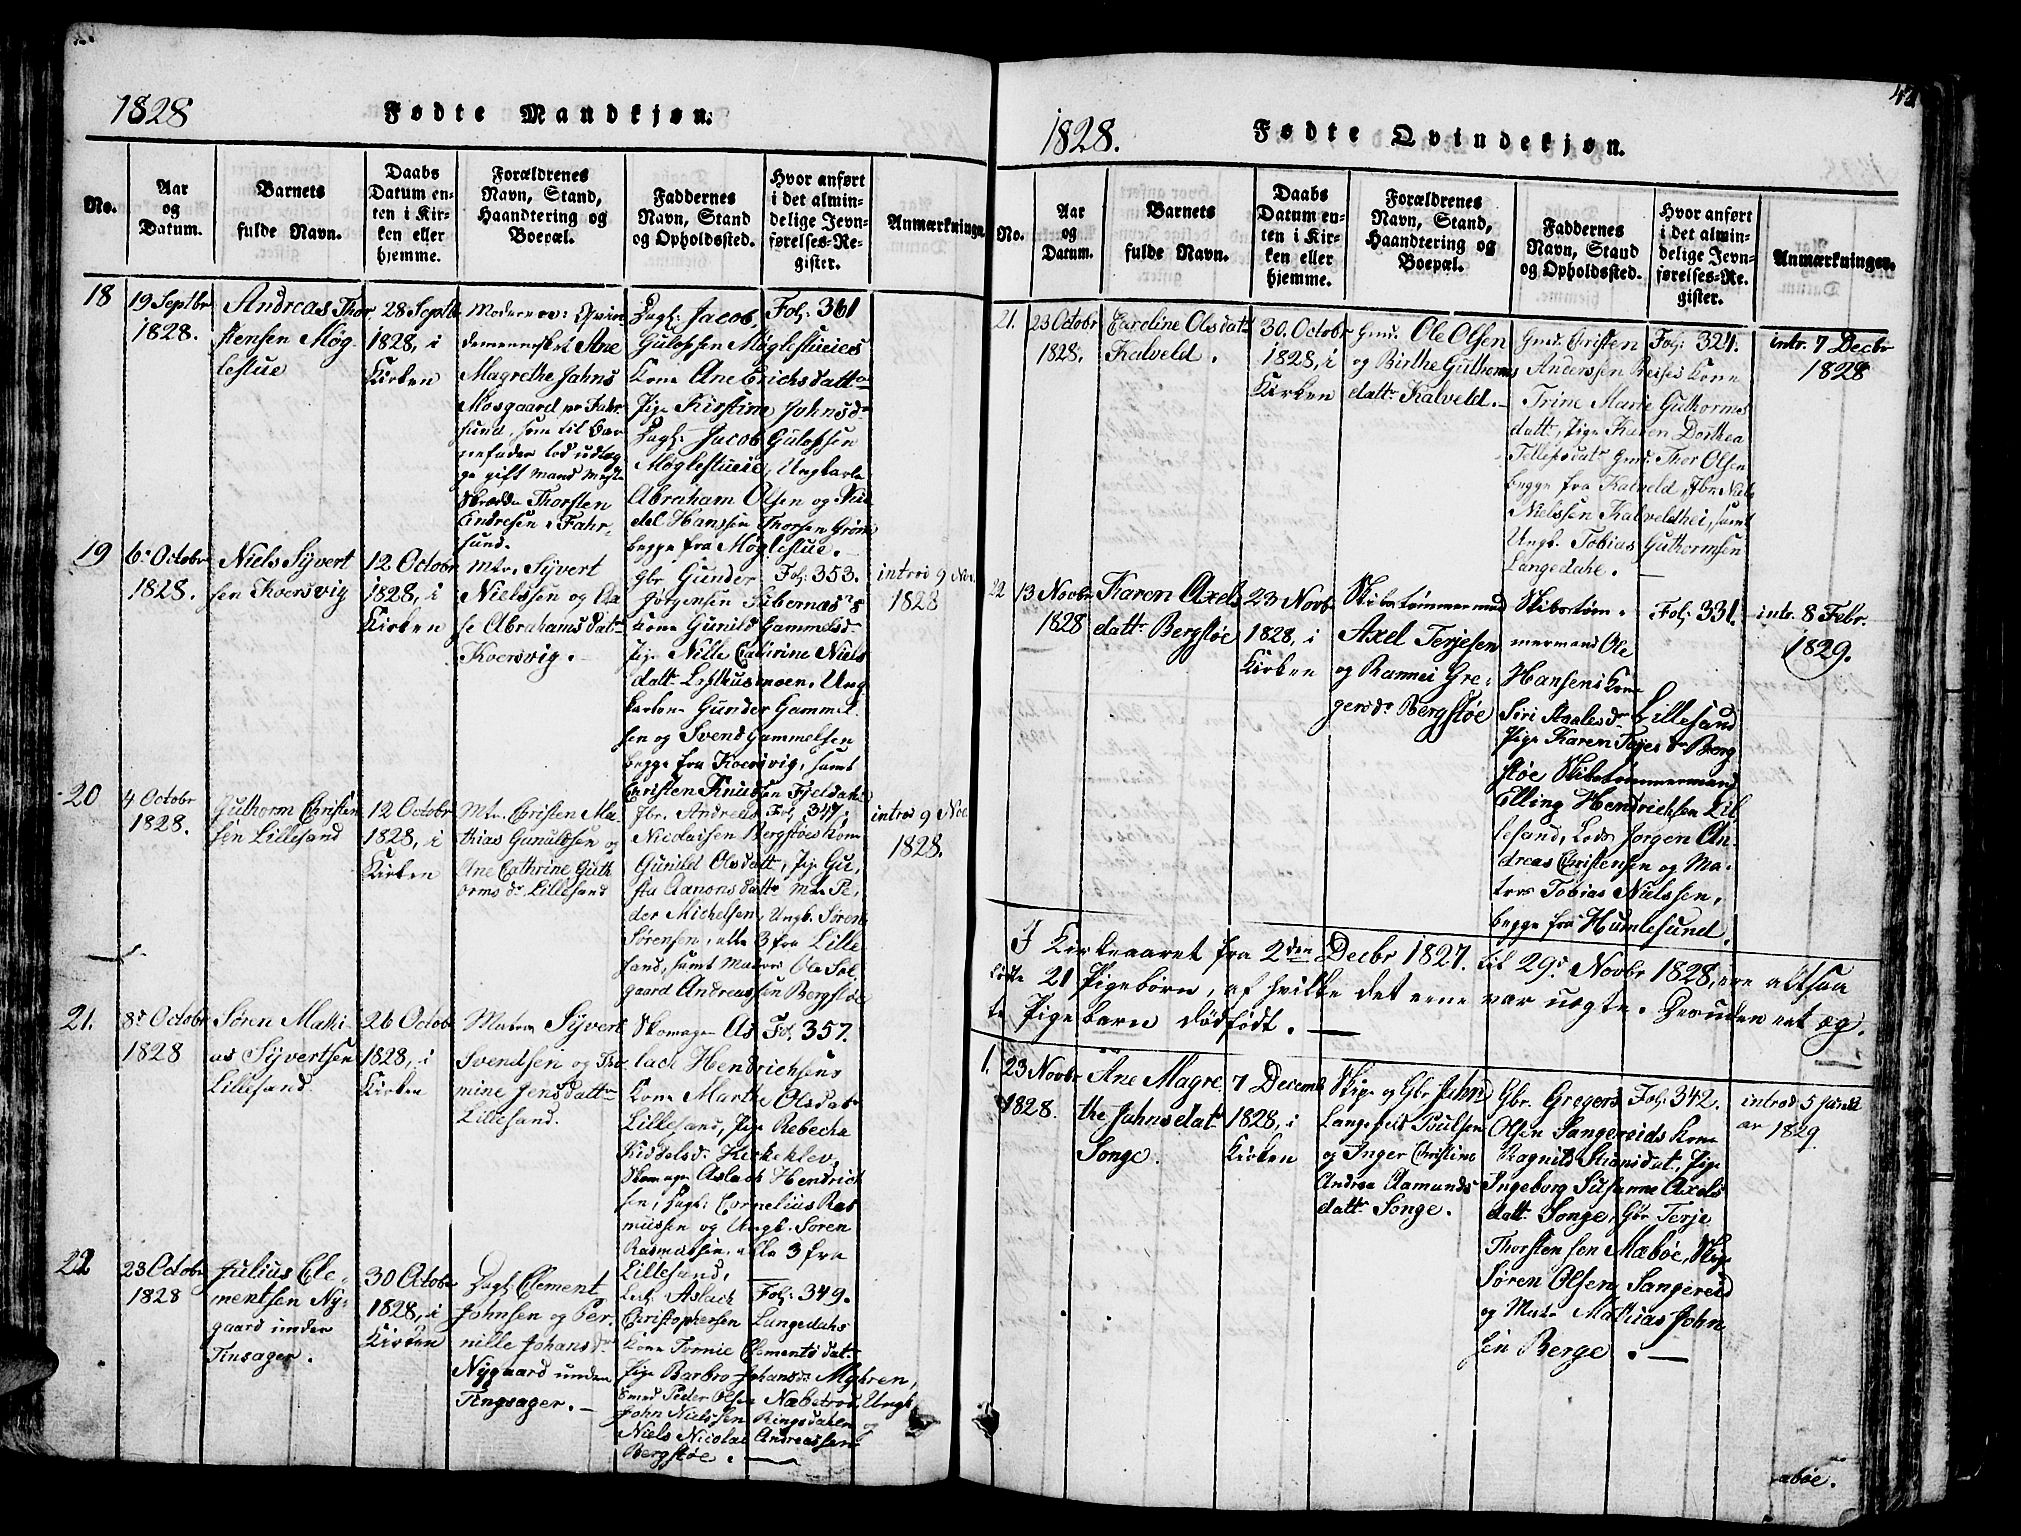 1828
Fødte Mandkjøn.
No.
Aar
og
Datum.
Barnets
fulde Navn.
Daabs
Datum en-
ten i Kir-
ken eller
hjemme.
Forældrenes
Navn, Stand,
Haandtering og
Boepæl.
Faddernes
Navn, Stand
og Opholdssted.
Hvor anført
i det almin-
delige Jevn-
førelses-Re-
gister.
Anmærkninger.
18
19 Septbr
1828.
Andreas Thor
stensen Møg
lestue
28 Septbr
1828, i
Kirken
Moderen er: Qvin
demennesket Ane
Magrethe Jahns
Mosgaard pr Fahr
sund, som til Bar
nefader lod udlæg
ge gift Mand
Thorsten
Andresen i Fahr
sund.
Dagl: Jacob
Gulovsen Møglestueies
Kone Ane Erichsdattr
Pige Kirstine Johnsdr
Dagl: Jacob Gulovsen
Møglestueie, Ungkarle
Abraham Olsen og
Hanssen Thorsen
begge fra Møglestue.
Fol: 361
19
6 Octobr
1828.
Niels Syvert
sen Koersvig
12 Octobr
1828, i
Kirken
Mtr. Syvert
Nielssen og Aa
se Abrahamsdatr
Koersvig.
Gbr Gunder
Jørgensen Tibernæs's
Kone Gunild Gammelsdr
Pige Nille Catirine Niels
datt. Ung
karlene Gunder Gammel
sen og Svend Gammelsen
begge fra Koersvig, samt
Christen Knudsen Fjeldahl
Fol: 353.
introd 9 Nov.
1828
20
4 Octobr
1828.
Guthorm Christen
sen Lillesand
12 Octobr
1828, i
Kirken
Mtr. Christen Ma
thias Gunuldsen og
Ane Cathrine Guth
orms dr Lillesand
Jbr. Andreas
Nicolaisen Bergstøes Kone
Gunild Olsdatt, Pige Gu
sta Aanonsdattr Mtr Pe
der Michelsen, Ungk. Søren
Sørensen, alle 3 fra Lille
sand, samt Matros Ole Sol
gaard Andreassen Bergstøe
Fol: 347,
introd 9 Nov.
1828.
21.
8 Octobr
1828
Søren Mathi
as Syvertsen
Lillesand.
26 Octobr
1828, i
Kirken
Matros Syvert
Svendsen og Tho
mine Jensdattr
Lillesand.
Skomager As
lach Hendrichsens
Kone Marthe Olsdatr
Lillesand, Pige Rebecha
Kiddelsdr Kirkeklev,
Skomager Aslach Hendrich
sen, Dagl: Cornelius Ras
mussen og Ungk. Søren
Rasmussen, alle 3 fra
Lillesand,
Fol: 357.
22
23 Octobr
1828
Julius Cle-
mentsen Ny-
gaard under
Tinsager.
30 Octobr
1828, i
Kirken
Dagl. Clement
Johnsen og Per
nille Johansdr
Nygaard under
Tingsager.
Aslach
Christophersen Langedahs
Kone Tomie Clementsdatr
Pige Barbro Johansdr Myhren,
Gmd Peder Olsen Næbetrod, Ungk.
John Nielssen Ringsdalen og
Niels Nicolai Andreassen
Bergstøe.
Fol: 349.
1828.
Fødte Qvindekjøn.
No.
Aar
og
Datum.
Barnets
fulde Navn.
Daabs
Datum en-
ten i Kir-
ken eller
hjemme.
Forældrenes
Navn, Stand,
Haandtering og
Boepæl.
Faddernes
Navn, Stand
og Opholdssted.
Hvor anført
i det almin-
delige Jevn-
førelses-Re-
gister.
Anmærkninger.
21.
23 Octobr
1828.
Caroline Olsdatr
Kalveld.
30. Octobr
1828, i
Kirken
Gmd: Ole Olsen
og Birthe Guthorms
datt. Kalveld.
Gmd: Christen
Anderssen Reises Kone
Trine Marie Guthorms
datt, Pige Karen Dorthea
Tellefsdatr Gmd: Thor Olsen
begge fra Kalveld, Jbr. Niels
Nielssen Kalveldhei, samt
Ungk. Tobias Guthormsen
Langedahl.
Fol: 324.
intr. 7 Decbr
1828
22
13 Novbr
1828
Karen Axels
datt. Bergstøe
23 Novbr
1828, i
Kirken
Skibstømmermand
Axel Terjesen
og Rannei Gre-
gersdr Bergstøe
Skibstøm-
mermand Ole
Hansens Kone
Siri Lillesand
Pige Karen Terjesdr Berg
støe Skibstømmermand
Elling Hendrichsen Lil
lesand, Lods Jørgen An-
dreas Christensen og Ma-
tros Tobias Nielssen,
begge fra Humlesund.
Fol: 331.
intr. 8 Febr.
1829.
I Kirkeaaret fra 2den Decbr 1827. til 29 Novbr 1828, ere altsaa
fødte 21 Pigebørn, af hvilke det eene var uægte. Desuden eet æg
te Pigebarn dødfødt.
1.
23 Novbr
1828.
Ane Magre
the Jahnsdatr
Songe.
7 Decemb
1828, i
Kirken
Skipr og Gbr Jahn
Langefeis Poulsen
og Inger Christine
Andrea Aamunds
datt. Songe.
Gbr. Gregers
Olsen Sangereids Kone
Ragnild Stiansdat, Pige
Ingeborg Susanne Axels
datt. Songe, Gbr Terje
Thorstensen Mæbøe, Skipr
Søren Olsen, Sangereid
og Matr. Mathias John
sen Berge.
Fol: 342.
introd 5 Janu
ar 1829.